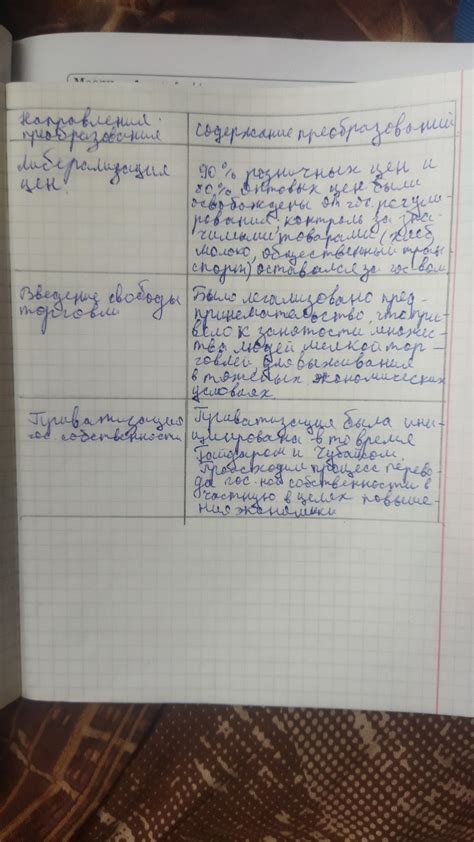 Направления преобразования
Содержание преобразований
Либерализация
цен.
90% розничных цен и
80% оптовых цен были
освобождены от гос. регули-
рования. контроль за зна-
чимыми товарами (хлеб
молоко, общественный тран-
спорт) оставался за гос-вом
Введение свободы
торговли
Было легализовано пред-
принимательство, что при-
вело к занятости множес-
тва людей мелкой тор-
говлей для выживания
в тяжёлых экономических
условиях.
Приватизация
гос. собственности
Приватизация была ини-
циирована в то время
Гайдаром и Чубайсом.
Происходил процесс перево-
да гос-ной собственности в
частную в целях повыше-
ния экономики